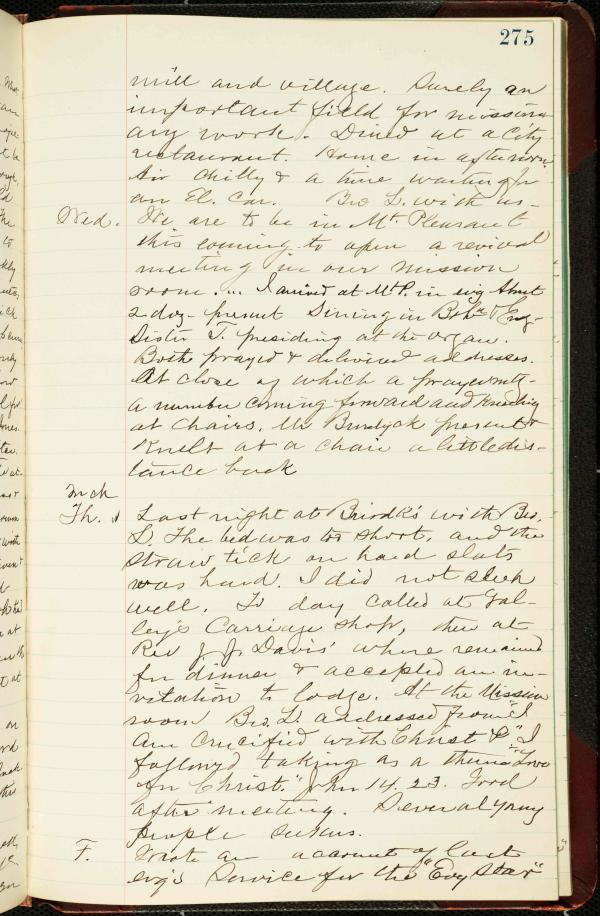 275
mill and village. Surely an
important field for mission-
ary work. Dined at a City
restaurant. Home in afternoon.
Air chilly & a time waiting for
an El. Car. Bro L. with us -
Wed. We are to be in Mt. Pleasant
this evening to open a revival
meeting in our mission
room. ... I arrived at Mt P. in evg About
2 doz - present Singing in Boh & Eng -
Sister T. presiding at the organ.
Both prayed & delivered addresses.
At close of which a prayer mtg -
a number coming forward and kneeling
at chairs. Mr present &
Knelt at a chair a little dis-
tance back
Mch
Th. 1 Last night at with Bro.
L. The bed was too short, and the
straw tick on hard slats
was hard. I did not sleep
well. To day called at Gal-
ley's Carriage shop, then at
Rev J. J. Davis' where remained
for dinner & accepted an in-
vitation to lodge. At the Mission
room Bro. L. addressed from "I
am crucified with Christ & "I
followed taking as a theme "Love
for Christ." John 14. 23. Good
after meeting. Several young
people
F. Wrote an account of last
evg's Service for the "Evg Star"